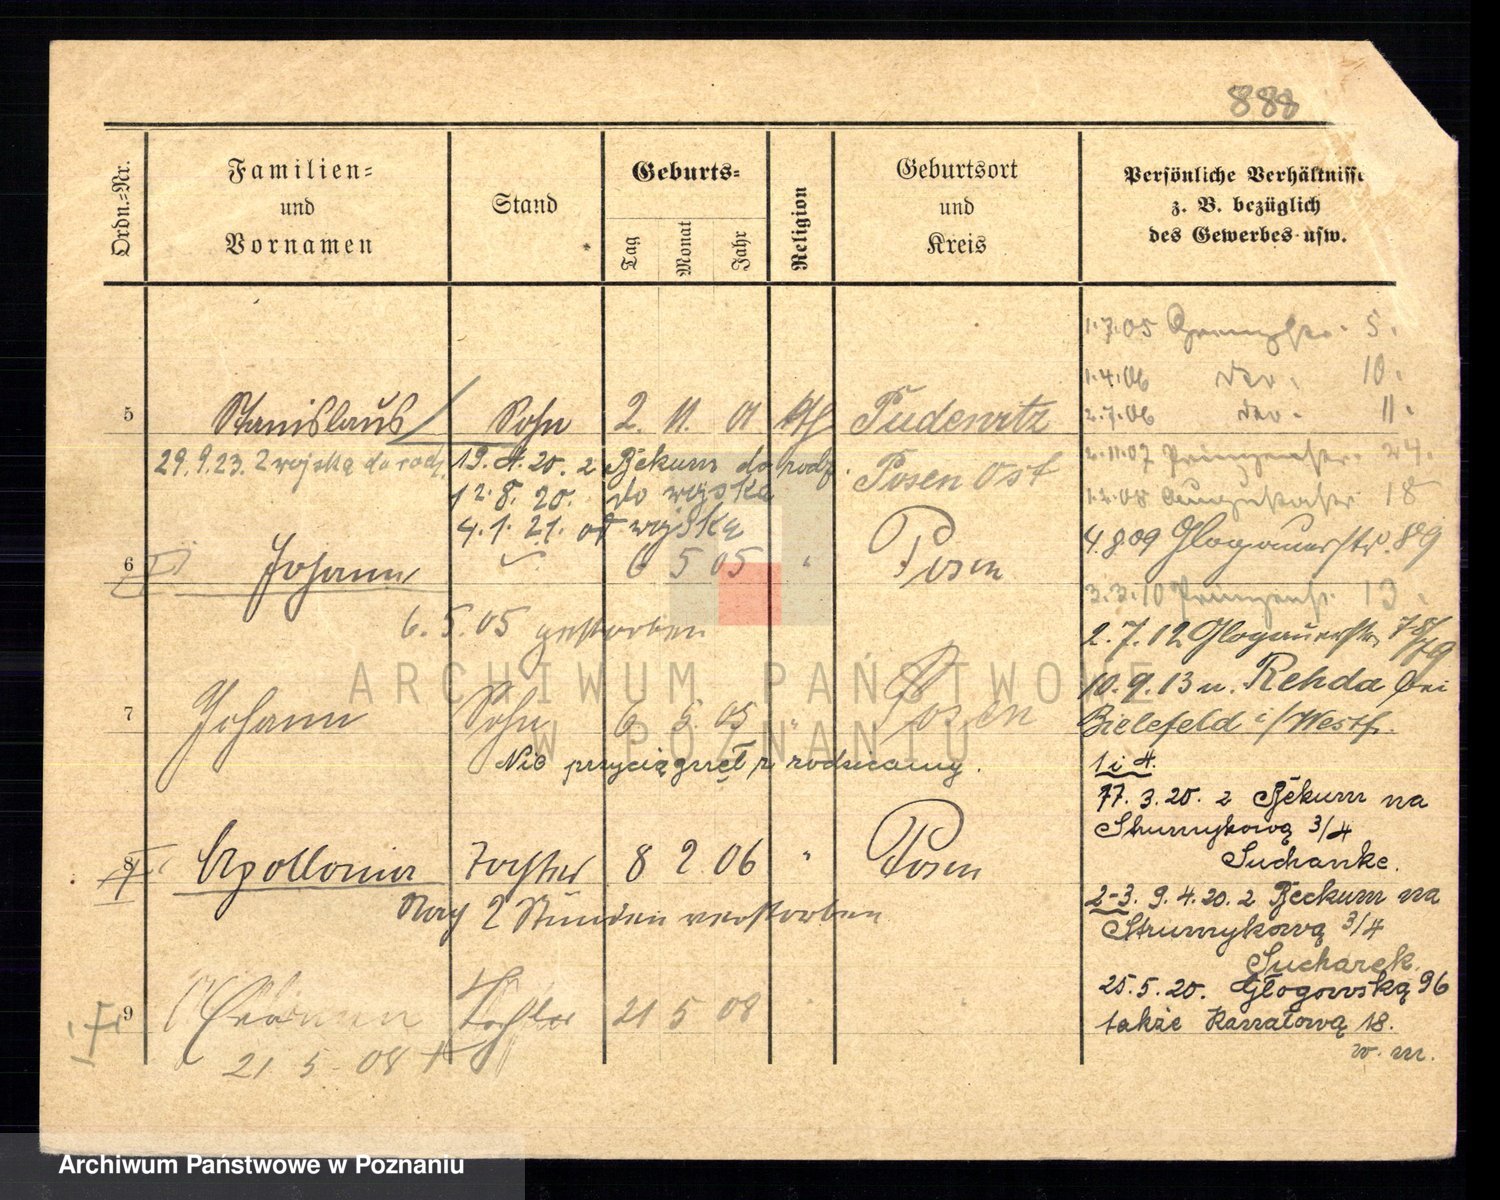 888
Ordn.-Nr.
Familien-
und
Vornamen
Stand
Geburts-
Tag
Monat
Jahr
Religion
Geburtsort
und
Kreis
Persönliche Verhältnisse
z. B. bezüglich
des Gewerbes usw.
1.7.05 5.
1.4.06 10.
2.7.06 11.
5 Stanislaus Sohn 2. 11. 01 Pudewitz
2.11.07 Prinzenstr. 24.
29.9.23. z wojska do rodz. 19. 4. 20. z Bekum do rodz. Posen Ost
18
12. 8. 20. do wojska
4. 1. 21. od wojska
4.8.09 Glogauerstr. 89
6 Johann 6 5 05 " Posen
3.3.10 Prinzenstr. 13.
6. 5. 05 gestorben
2.7.12 Glogauerstr. 78/79
10.9.13 n. Rehda bei
7 Johann Sohn 6 5. 05 " Posen
Bielefeld i/Westf.
Nie przyciągnął z rodzicamy.
1 i 4.
17. 3. 20. z Bekum na
Strumykową 3/4
Suchanke.
8 Apollonia Tochter 8 2 06 " Posen
2-3. 9. 4. 20. z Beckum na
Nach 2 Stunden verstorben
Strumykową 3/4
Sucharek.
25. 5. 20. Głogowską 96
9 Tochter 21 5 08
także Kanałową 18.
21 5 08 †
w. m.
ARCHIWUM PAŃSTWOWE
W POZNANIU
Archiwum Państwowe w Poznaniu